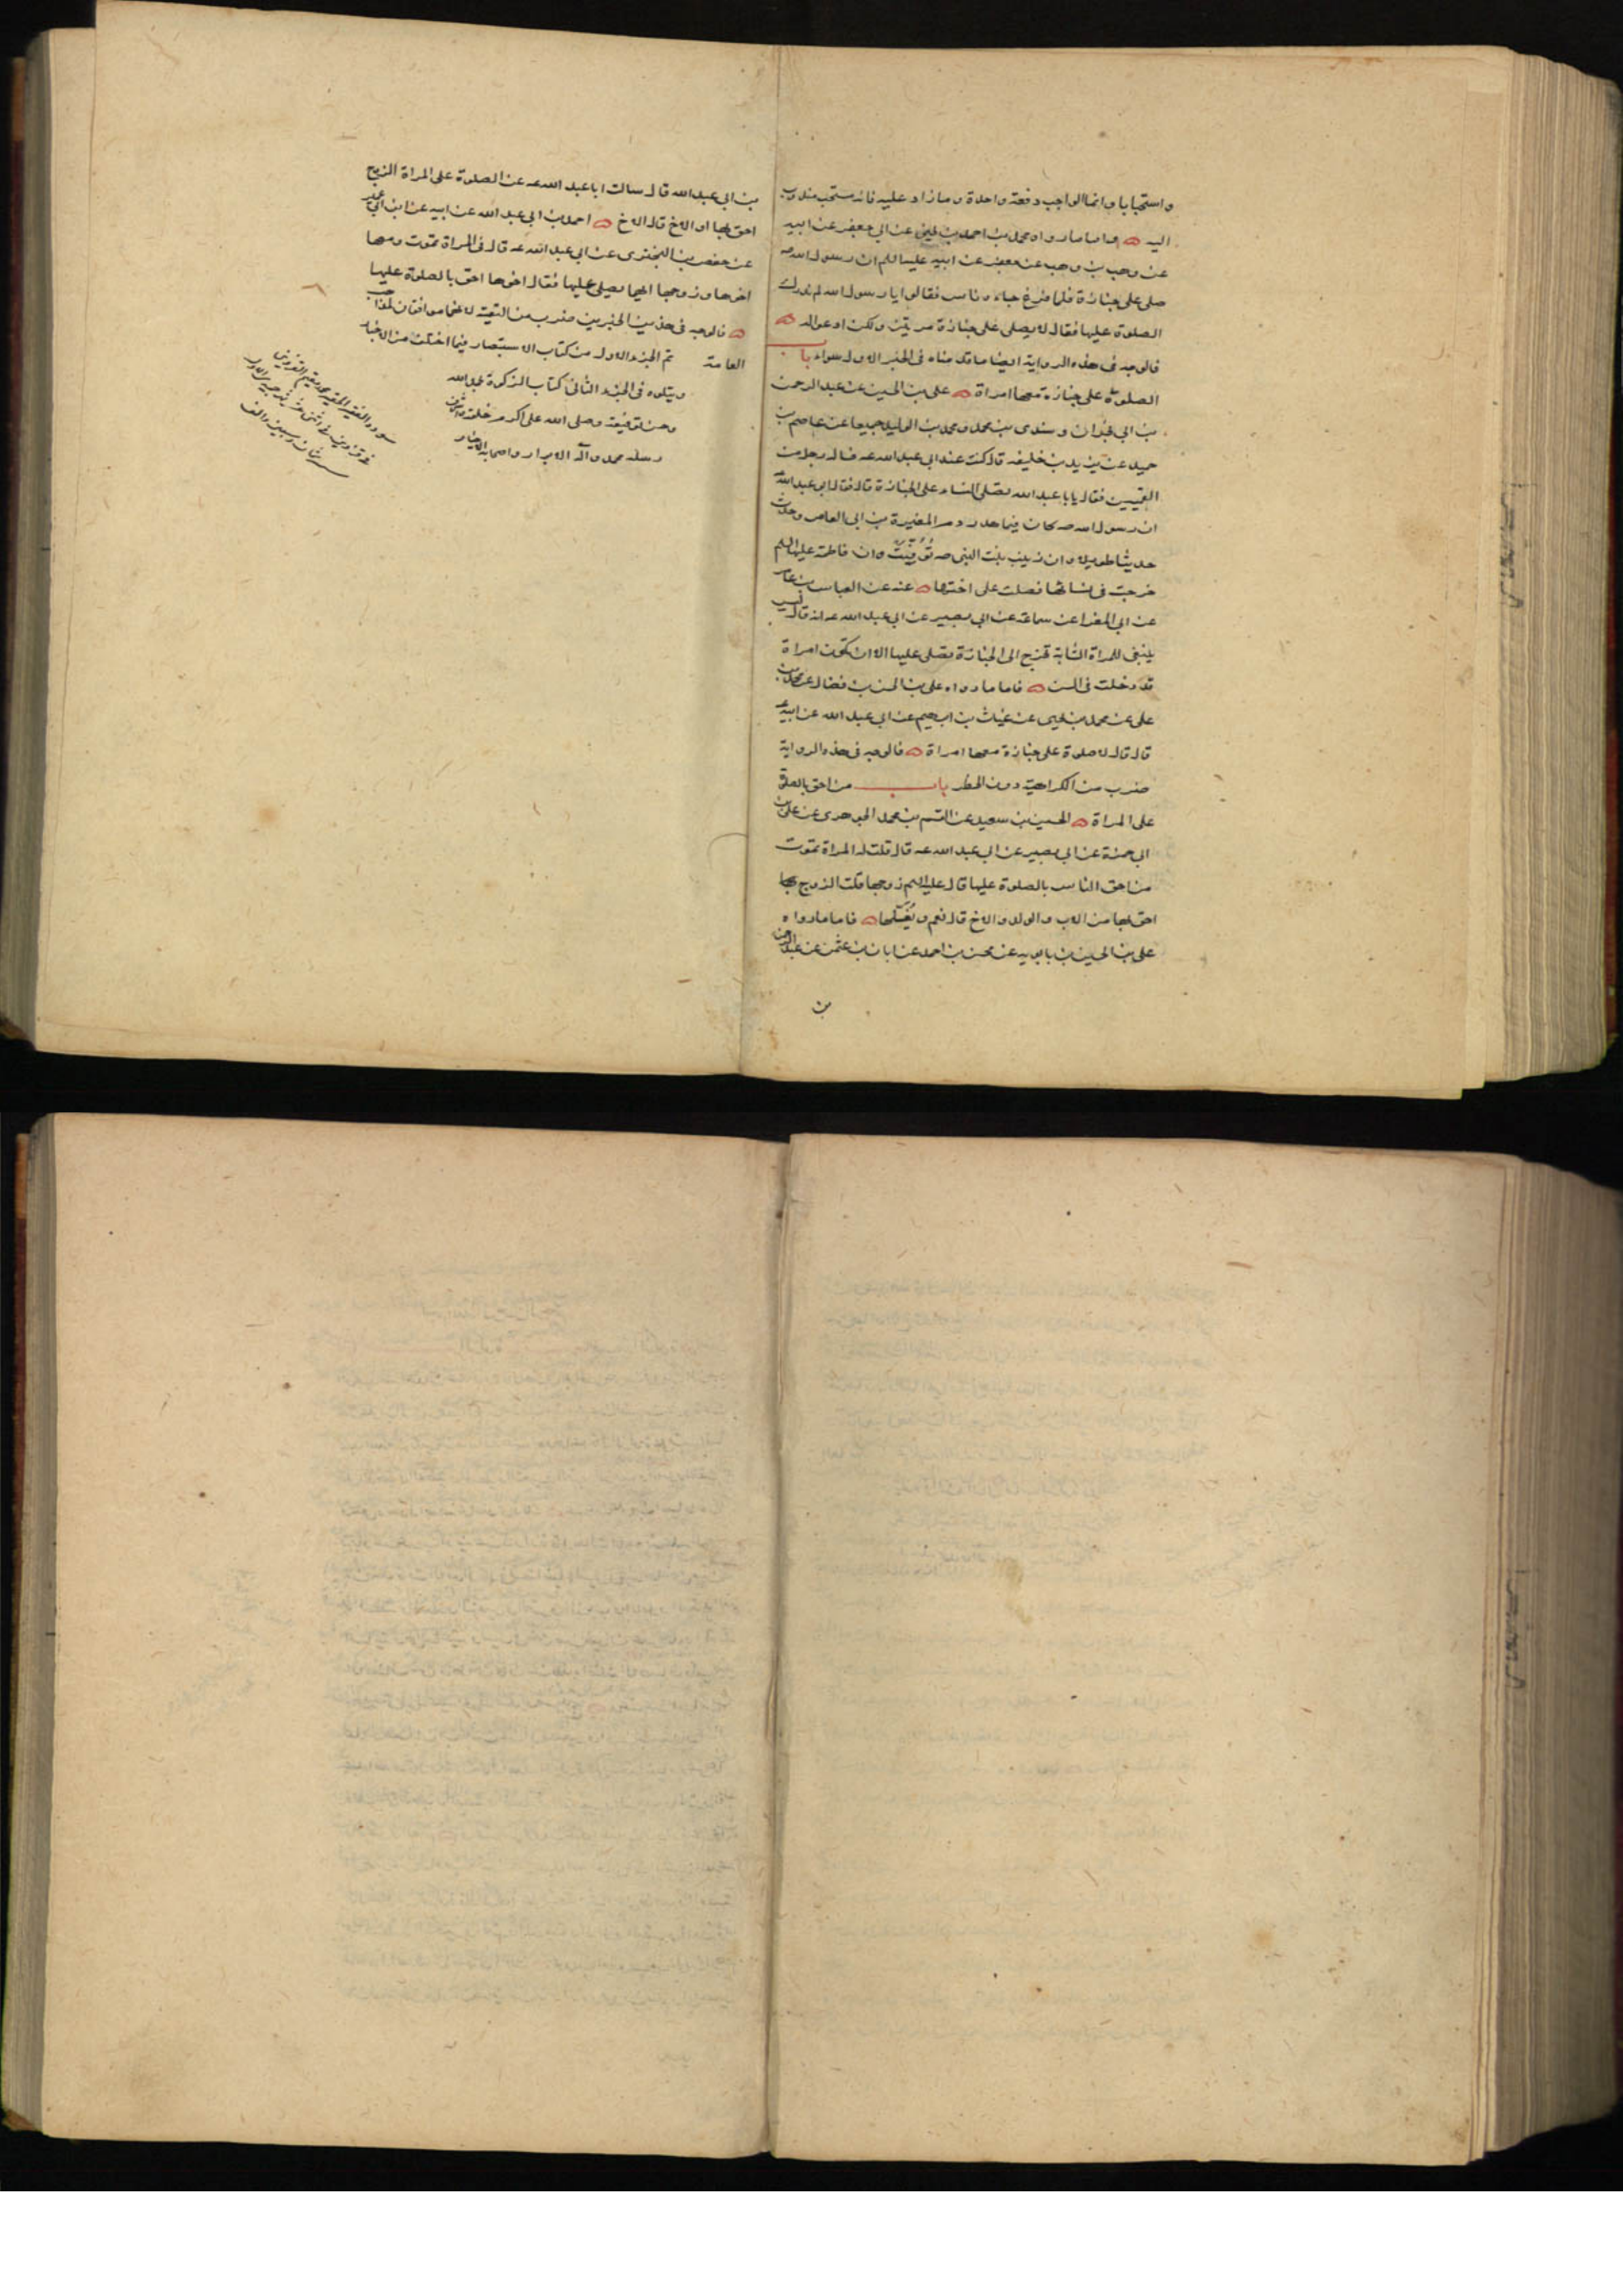 واستحبابا وانما الواجب دفعة واحدة وما زاد عليه فانه مستحب مندوب
اليه فاما ما رواه محمد بن احمد بن يحيى عن ابي جعفر عن ابيه
عن وهب بن وهب عن جعفر عن ابيه عليهما السلم ان رسول الله صه
صلى على جنازة فلما فرغ جاءه ناس فقالوا يا رسول الله لم ندرك
الصلوة عليها فقال لا يصلى على جنازة مرتين ولكن ادعوا له
فالوجه في هذه الرواية ايضا ما قدمناه في الخبر الاول سواء باب
الصلوة على جنازة معها امراة على بن الحسين عن عبد الرحمن
بن ابي نجران وسندى بن محمد ومحمد بن الوليد جميعا عن عاصم بن
حميد عن يزيد بن خليفه قال كنت عند ابي عبد الله عه فساله رجل من
القميين فقال يابا عبد الله تصلى النساء على الجنازة قال فقال ابو عبد الله
ان رسول الله صه كان فيما هدر دم المغيرة بن ابي العاص وحدث
حديثا طويلا وان زينب بنت النبي صه توفيت وان فاطمة عليها السلم
خرجت في نسائها فصلت على اختها عنه عن العباس بن عامر
عن ابي المغرا عن سماعة عن ابي بصير عن ابي عبد الله عه انه قال ليس
ينبغي للمراة الشابة تخرج الى الجنازة تصلى عليها الا ان تكون امراة
قد دخلت في السن فاما ما رواه على بن الحسن بن فضال عن محمد بن
على عن محمد بن يحيى عن غياث بن ابرهيم عن ابي عبد الله عن ابيه
قال قال لا صلوة على جنازة معها امراة فالوجه في هذه الرواية
ضرب من الكراهية دون الحظر باب من احق بالصلوة
على المراة الحسين بن سعيد عن القسم بن محمد الجوهرى عن على بن
ابي حمزة عن ابي بصير عن ابي عبد الله عه قال قلت له المراة تموت
من احق الناس بالصلوة عليها قال عليه السلم زوجها قلت الزوج
احق بها من الاب والولد والاخ قال نعم ويغسلها فاما ما رواه
على بن الحسين بن بابويه عن محسن بن احمد عن ابان بن عثمن عن عبد الرحمن
بن
بن ابي عبد الله قال سالت ابا عبد الله عه عن الصلوة على المراة الزوج
احق بها او الاخ قال الاخ احمد بن ابي عبد الله عن ابيه عن ابن ابي عمير
عن حفص بن البخترى عن ابي عبد الله عه قال في المراة تموت ومعها
اخوها وزوجها ايهما يصلى عليها فقال اخوها احق بالصلوة عليها
فالوجه في هذين الخبرين ضرب من التقية لانهما موافقان لمذاهب
العامة تم الجزء الاول من كتاب الاستبصار فيما اختلف من الاخبار
ويتلوه في الجزء الثاني كتاب الزكوة بحمد الله
وحسن توفيقه وصلى الله على اكرم خلقه
رسله محمد وآله الابرار واصحابه الاخيار
سوده الفقير الحقير محمد مقيم القزويني
سنة ثمان وسبعين والف